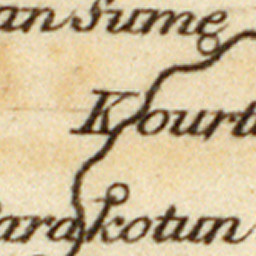 an Sume
Kourt
ara kotun